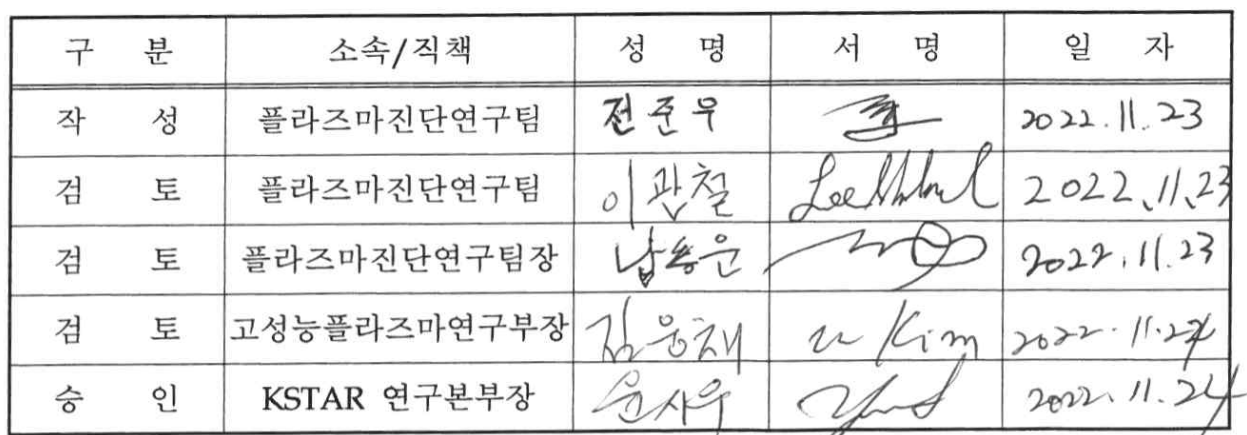 구 분 소속/직책 성 명 서 명 일 자
작 성 플라즈마진단연구팀 전준우 2022.11.23
검 토 플라즈마진단연구팀 이관철 2022.11.23
검 토 플라즈마진단연구팀장 남용운 2022.11.23
검 토 고성능플라즈마연구부장 김웅채 u Kim 2022.11.24
승 인 KSTAR 연구본부장 윤시우 2022.11.24